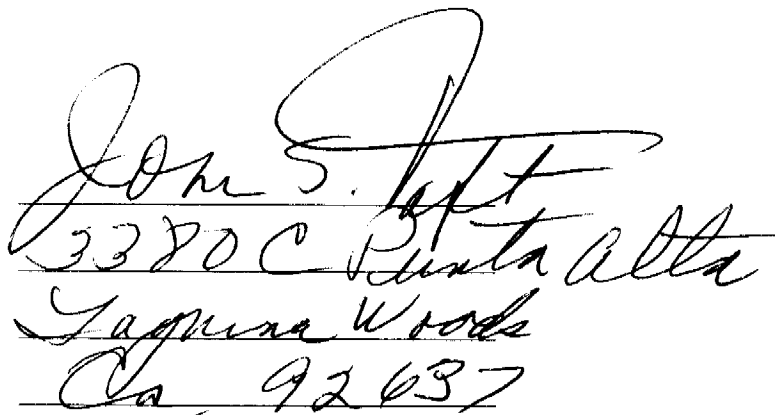 John S. Taft
3380 C Punta Alta
Laguna Woods
Ca 92637